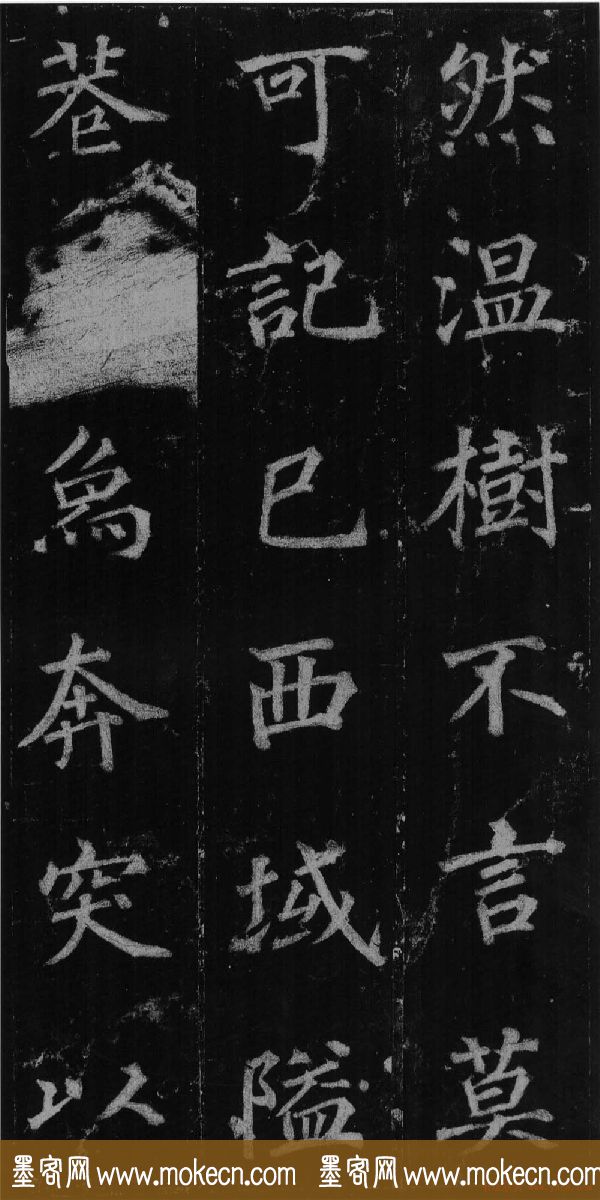 然温樹不言莫
可記巳西域隘
巷奔突以
墨客网 www.mokecn.com 墨客网 www.mokecn.com